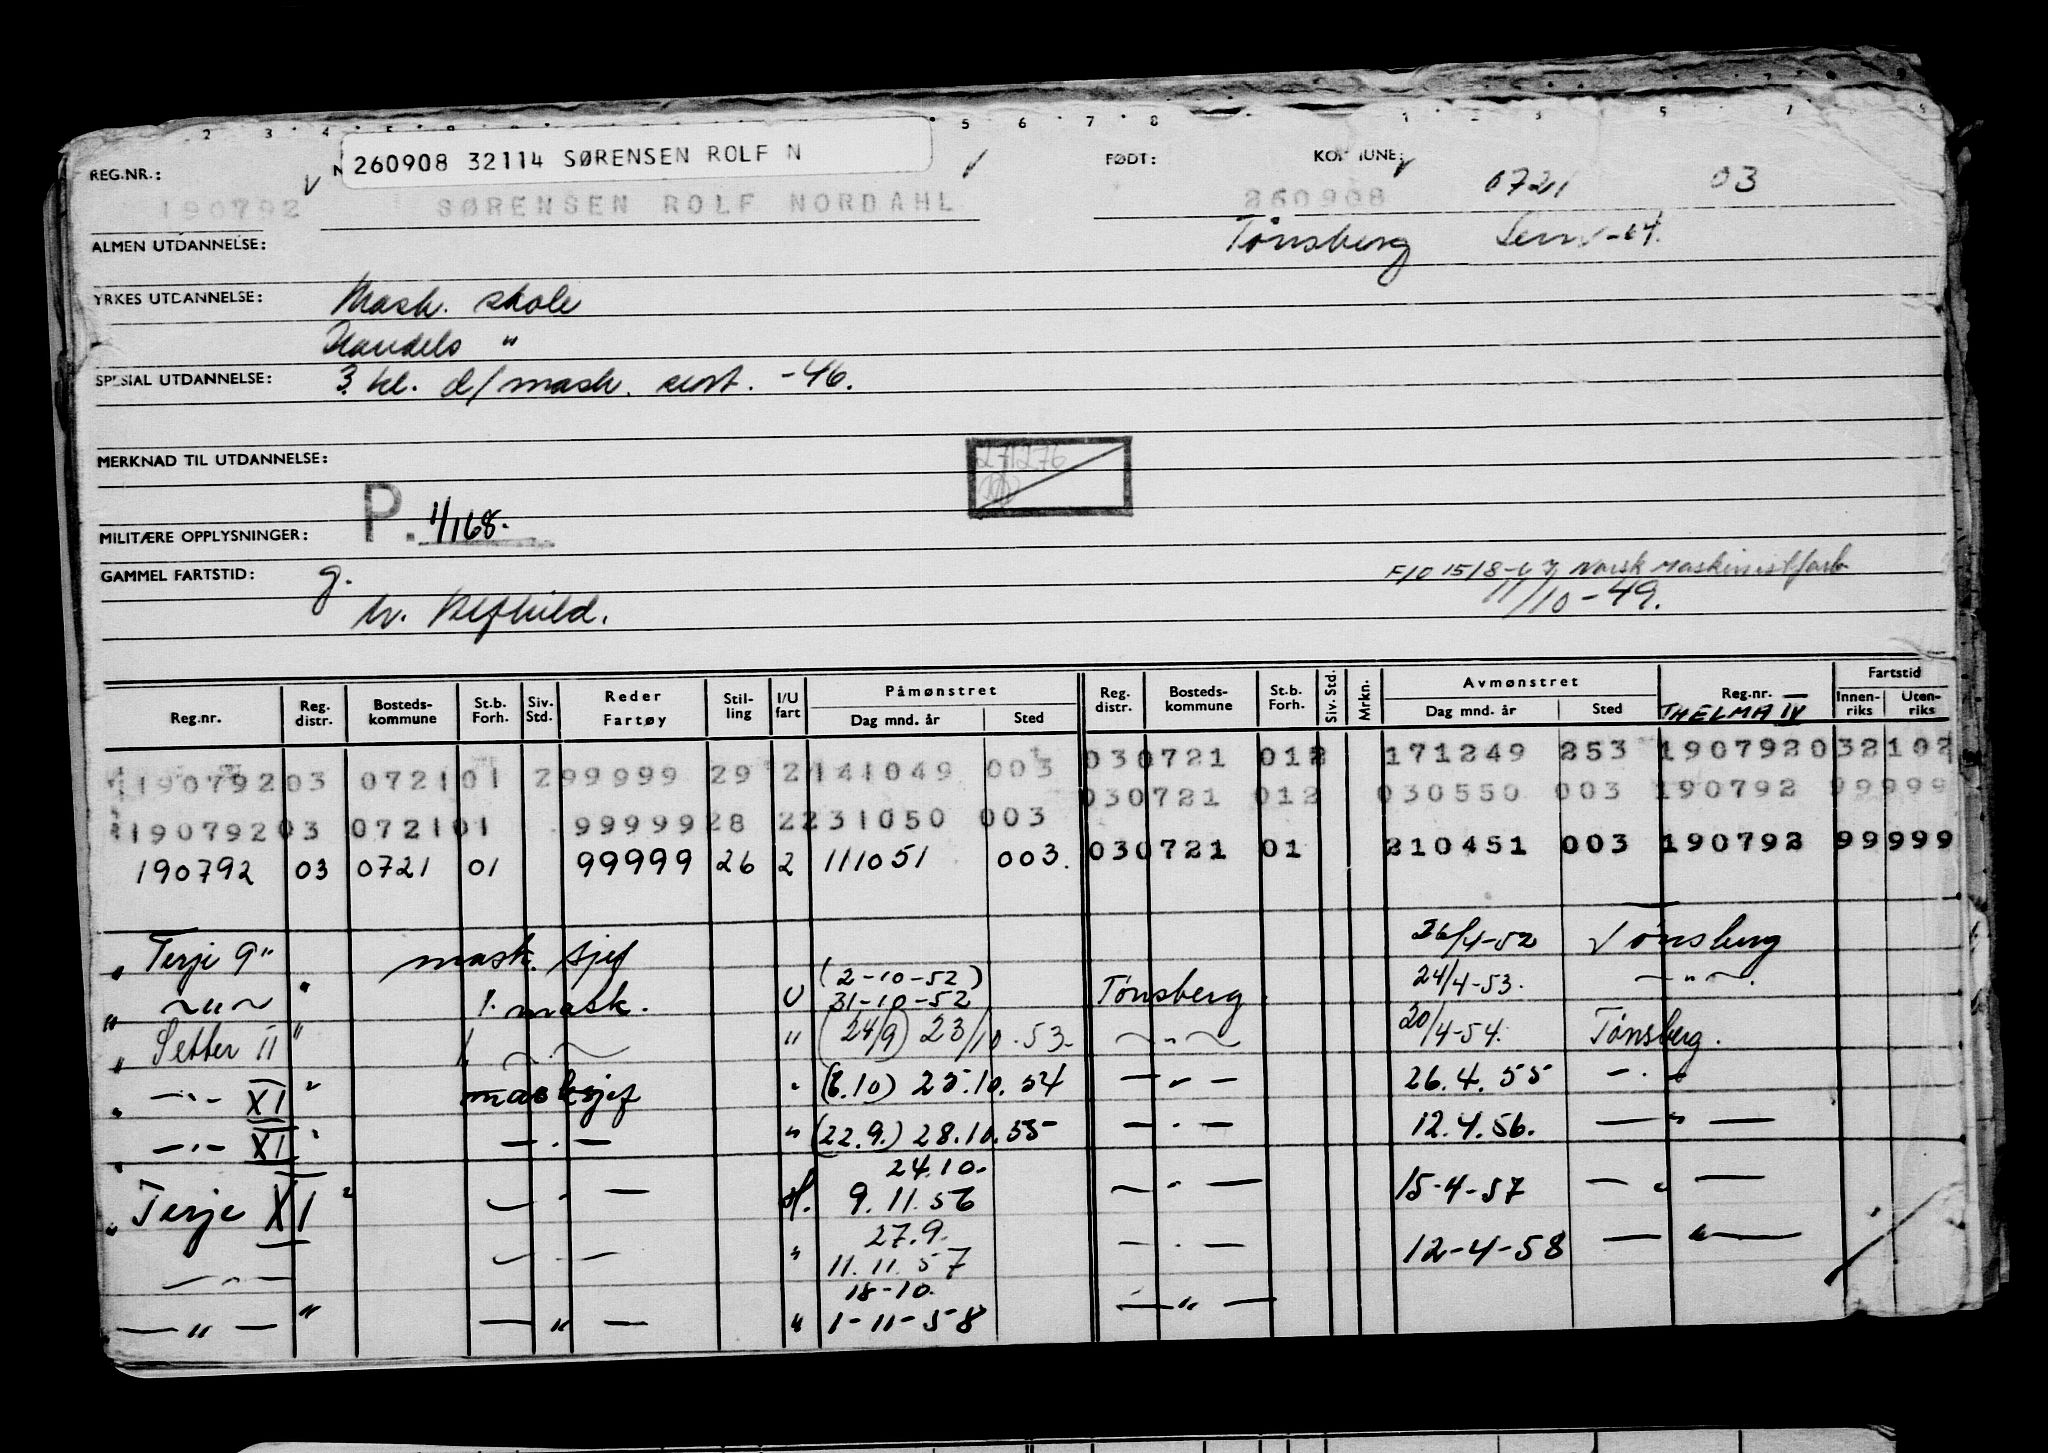 260908 32114 SØRENSEN ROLF N
REG.NR.: FØDT: KOMMUNE: 0721 03
190792 SØRENSEN ROLF NORDAHL 260908
Tønsberg
ALMEN UTDANNELSE:
YRKES UTDANNELSE: Mask. skole
Handels "
SPESIAL UTDANNELSE: 3 kl. d/mask. cert. -46.
MERKNAD TIL UTDANNELSE:
271276
P. 1/168.
MILITÆRE OPPLYSNINGER:
GAMMEL FARTSTID: g.
Norsk Maskinistforb
11/10-49.
Reg.nr. Reg. distr. Bosteds-kommune St.b. Forh. Siv. Std. Reder Fartøy Stil-ling I/U fart Påmønstret Dag mnd. år Sted Reg. distr. Bosteds-kommune St.b. Forh. Siv. Std. Mrkn. Avmønstret Dag mnd. år Sted Reg.nr. Fartstid Innen-riks Uten-riks
THELMA IV
19079203 072101 299999 29 2 141049 003 030721 012 171249 253 190792032102
030721 012 030550 003 190792 99999
19079203 072101 9999928 2231050 003 030721 01 210451 003 190792 99999
190792 03 0721 01 99999 26 2 111051 003.
" Terje 9" mask. sjef 26/4-52 Tønsberg
" -"- " 1. mask. U (2-10-52) 31-10-52 Tønsberg 24/4-53. -"-
" Setter II " 1. - . - " (24/9) 23/10.53- -"- 20/4-54. Tønsberg.
" -"- XI " masksjef " (6.10) 25.10.54 -"- 26.4.55 -"-
" -"- XI " - . - " (22.9.) 28.10.55 - . - 12.4.56. - " -
24.10.
" Terje XI " - . - 9.11.56 - . - 15-4-57 - " -
27.9.
- " - - . - " 11.11.57 - . - 12-4-58 - " -
18-10.
- " - " - " - " 1-11-58 - " -